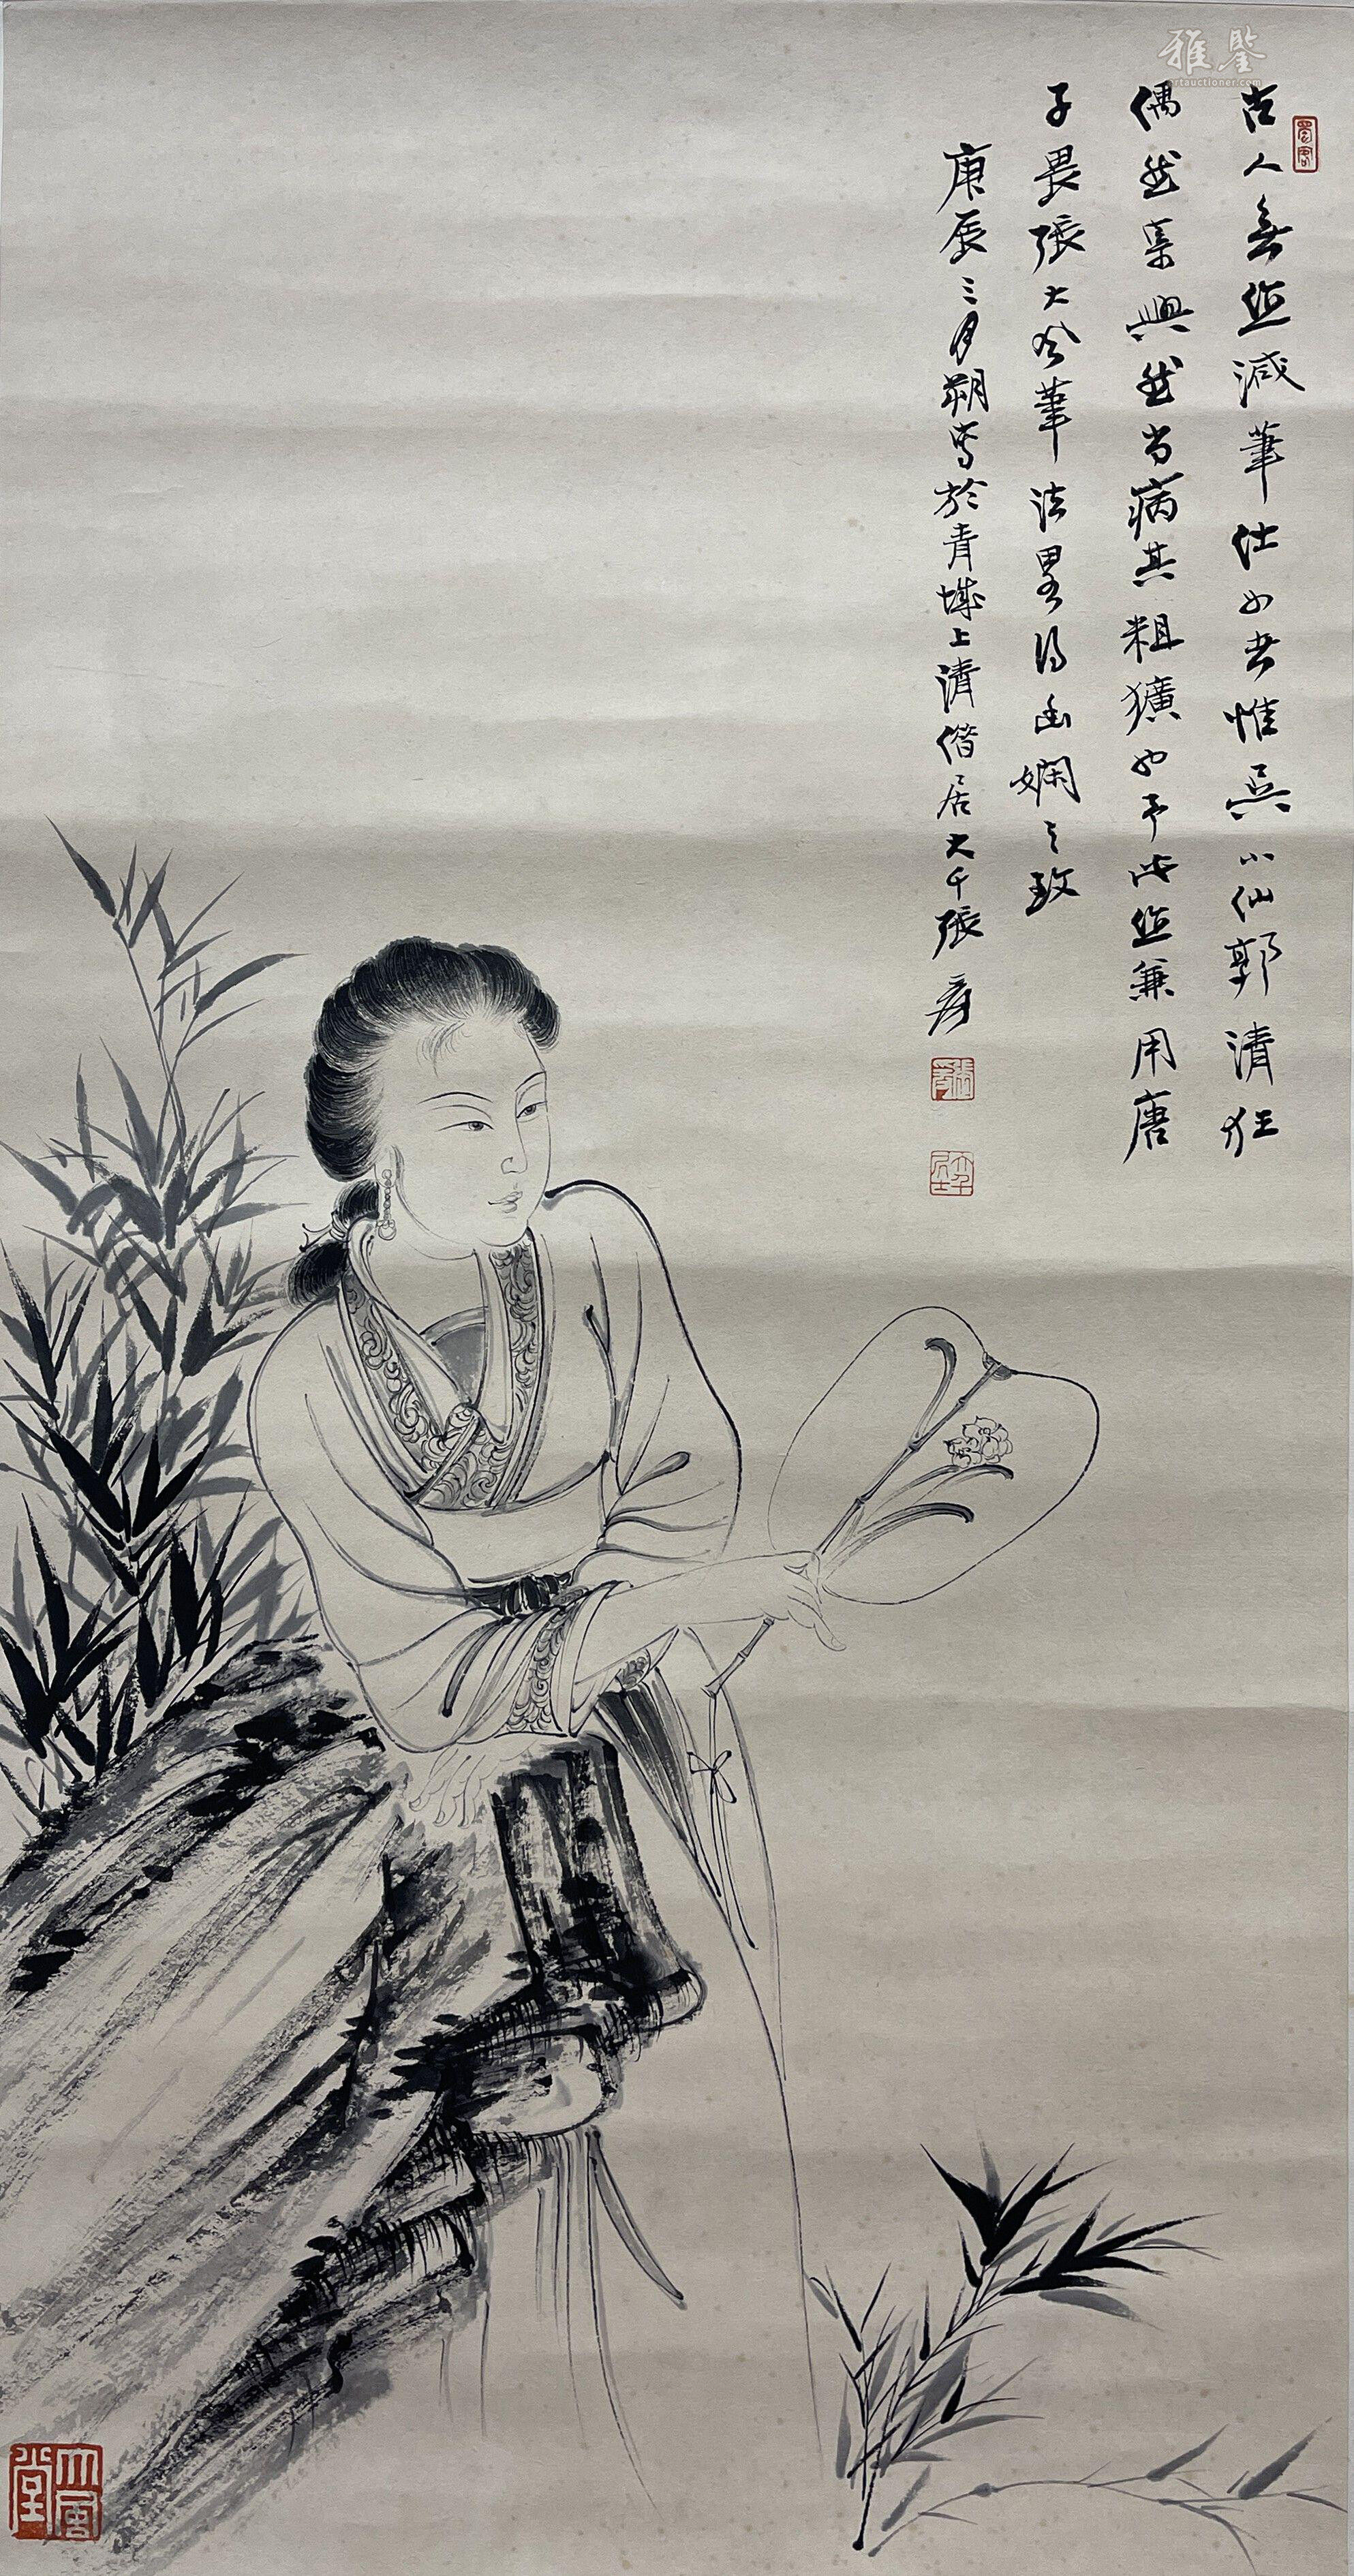 雅鑒
artauctioner.com
古人無作減筆仕女者惟吳小仙郭清狂
偶然乘興然尚病其粗獷也予此作兼用唐
子畏張大風筆法畧得幽嫻之致
庚辰三月朔寫於青城上清借居大千張爰
蜀客
張爰
大千居士
大風堂